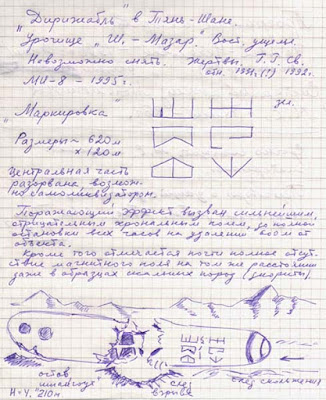 „Дирижабль" в Тянь-Шане.
Урочище „Ш.-Мазар." Вост. ущелье.
Невозможно снять. Жертвы. Г.Г. Св.
отн. 1991, (?) 1992.
Ми-8 – 1995г.
„Маркировка"
Размеры ~ 620м
х 120м
Центральная часть
разорвана возмож-
но самоликвидатором.
Поражающий эффект вызван сильнейшим,
отрицательным хрональным полем, до полной
остановки всех часов на удалении 800м от
объекта.
Кроме того отмечается почти полное отсут-
ствие магнитного поля на том же расстоянии
даже в образцах скальных пород (диориты)
остов
"шпангоут"
H-4. 210м
след
взрыва
след скольжения